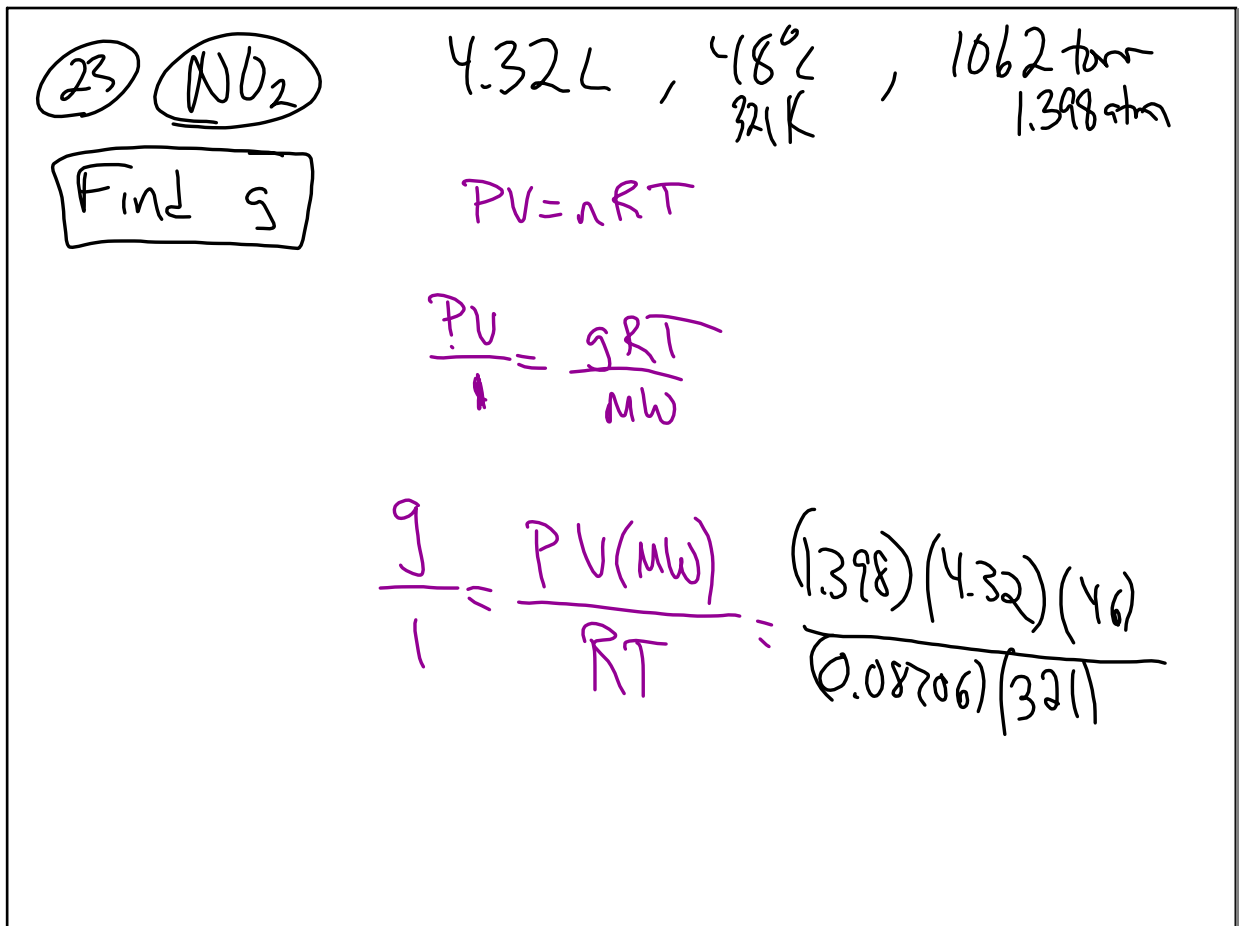 23 NO₂ 4.32L , 48°C , 1062 torr
321K 1.398 atm
Find g
PV=nRT
PV/1 = gRT/MW
g/1 = PV(MW)/RT = (1.398)(4.32)(46)/(0.08206)(321)